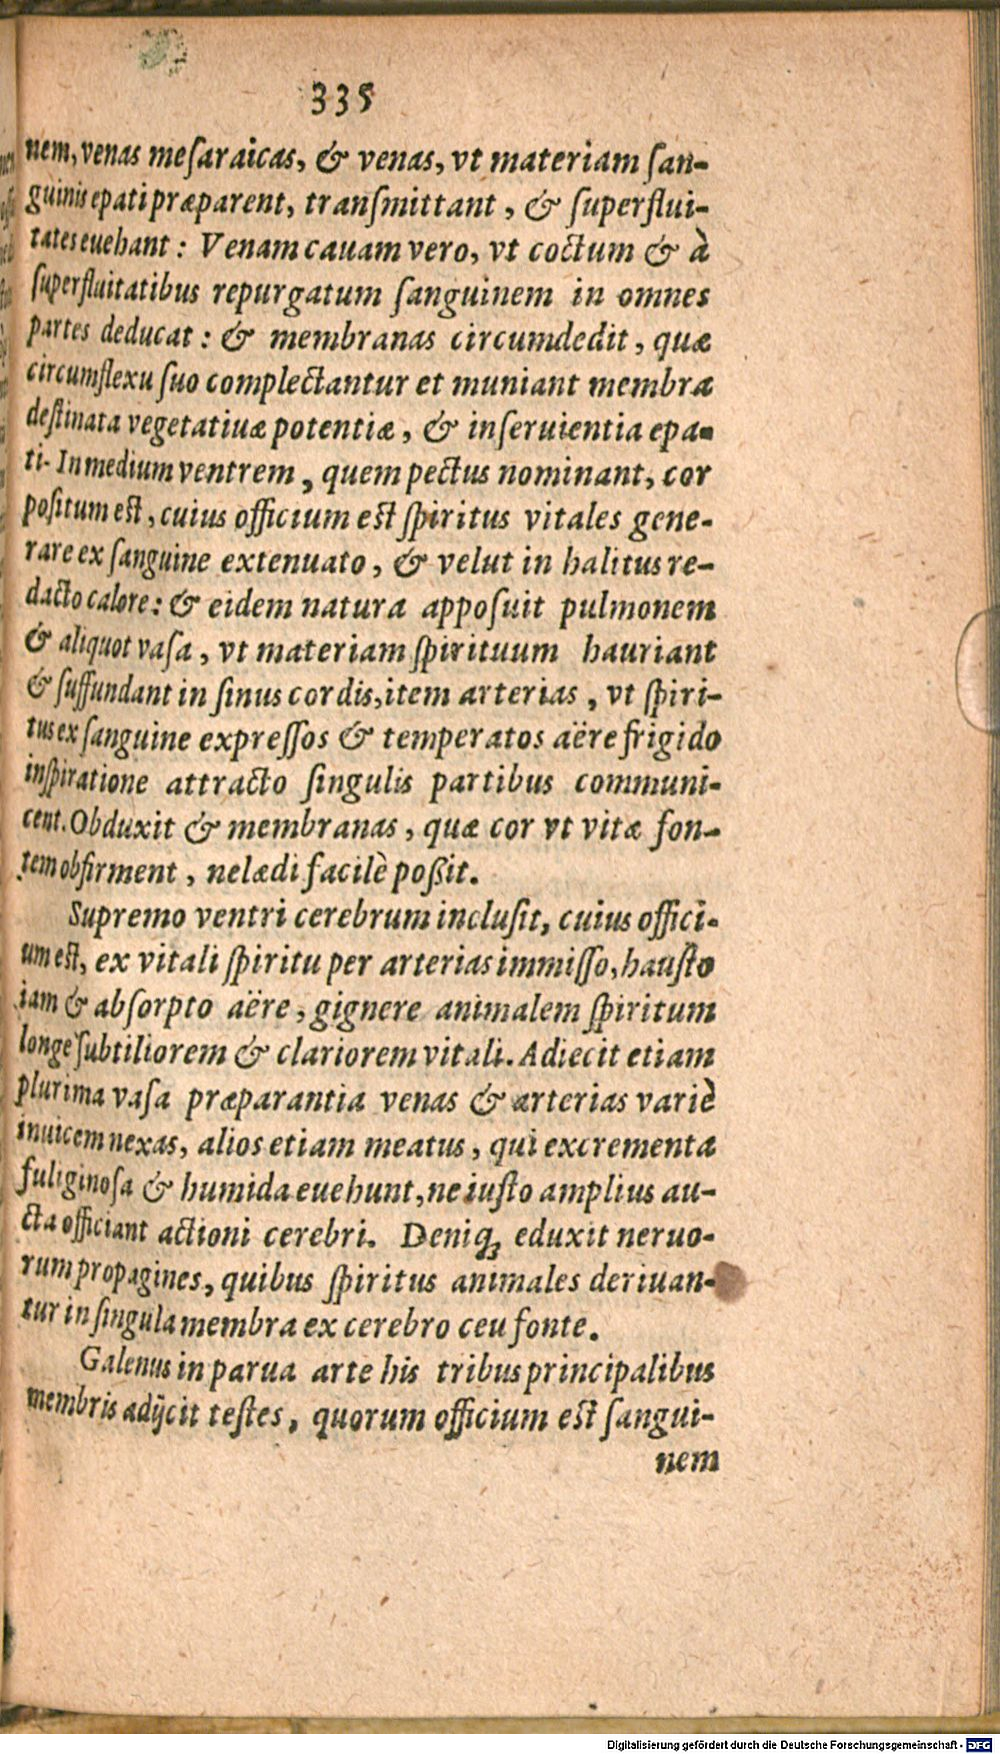 335
nem, venas meſaraicas, & venas, vt materiam ſan-
guinis epati præparent, tranſmittant, & ſuperflui-
tates euehant: Venam cauam vero, vt coctum & à
ſuperfluitatibus repurgatum ſanguinem in omnes
partes deducat: & membranas circumdedit, quæ
circumflexu ſuo complectantur et muniant membra
deſtinata vegetatiuæ potentiæ, & inſeruientia epa-
ti. In medium ventrem, quem pectus nominant, cor
poſitum eſt, cuius officium eſt ſpiritus vitales gene-
rare ex ſanguine extenuato, & velut in halitus re-
dacto calore: & eidem natura appoſuit pulmonem
& aliquot vaſa, vt materiam ſpirituum hauriant
& ſuffundant in ſinus cordis, item arterias, vt ſpiri-
tus ex ſanguine expreſſos & temperatos aëre frigido
inſpiratione attracto ſingulis partibus communi-
cent. Obduxit & membranas, quæ cor vt vitæ fon-
tem obfirment, ne lædi facilè poßit.
Supremo ventri cerebrum incluſit, cuius offici-
um eſt, ex vitali ſpiritu per arterias immiſſo, hauſto
iam & abſorpto aëre, gignere animalem ſpiritum
longe ſubtiliorem & clariorem vitali. Adiecit etiam
plurima vaſa præparantia venas & arterias variè
inuicem nexas, alios etiam meatus, qui excrementa
fuliginoſa & humida euehunt, ne iuſto amplius au-
cta officiant actioni cerebri. Deniq; eduxit neruo-
rum propagines, quibus ſpiritus animales deriuan-
tur in ſingula membra ex cerebro ceu fonte.
Galenus in parua arte his tribus principalibus
membris adijcit teſtes, quorum officium eſt ſangui-
nem
Digitalisierung gefördert durch die Deutsche Forschungsgemeinschaft - DFG